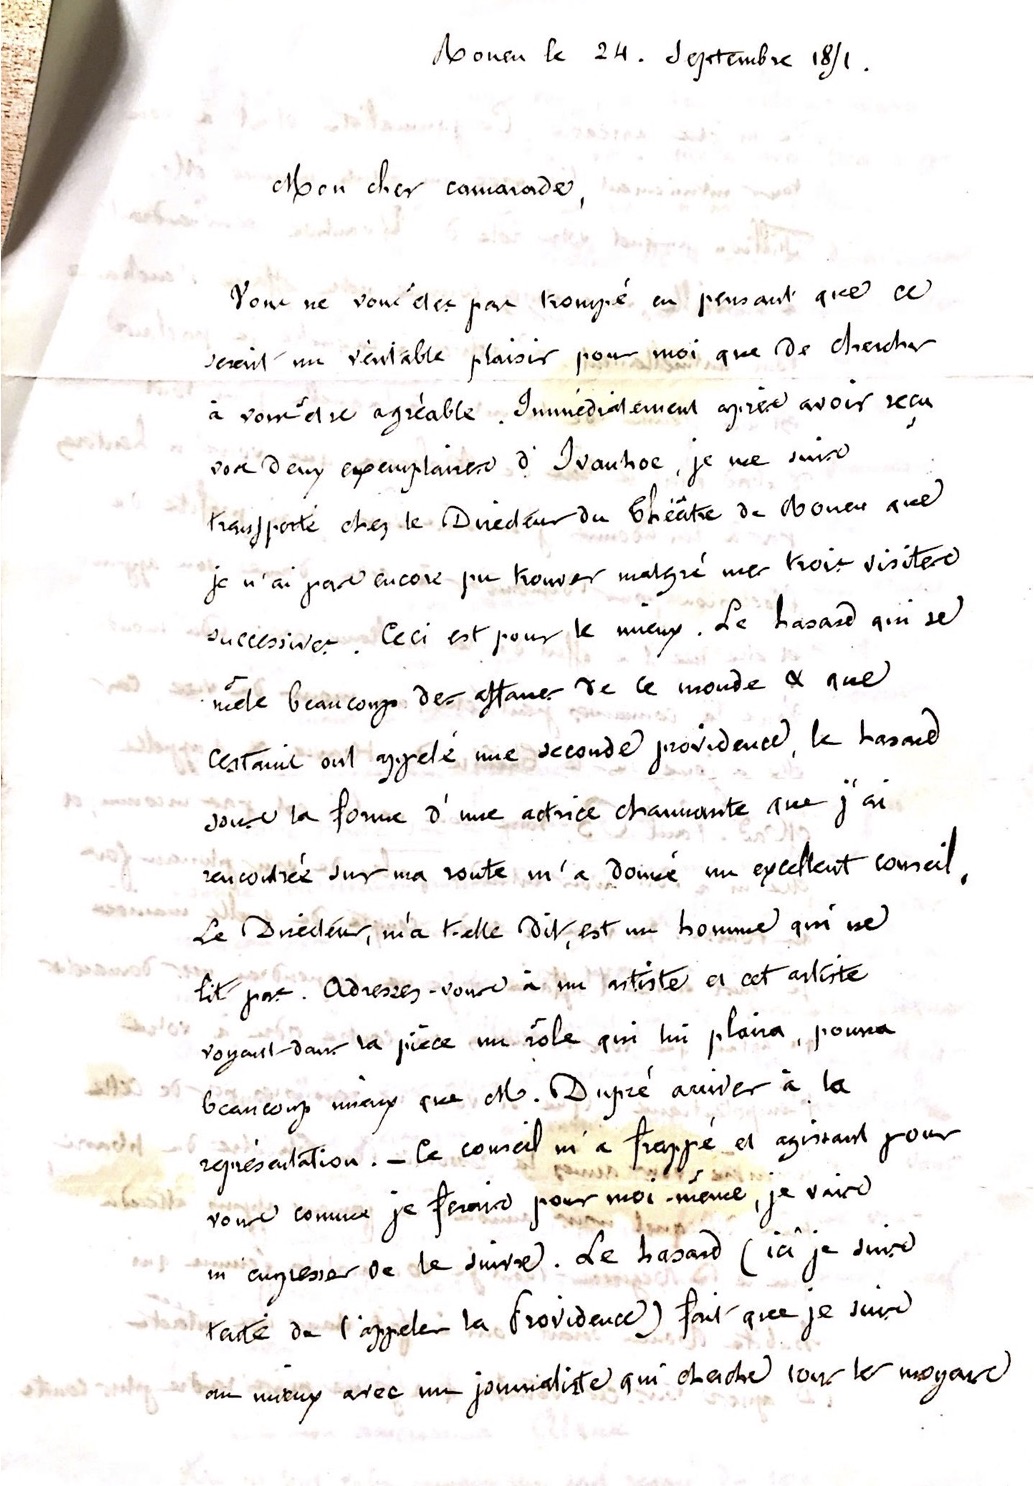 Rouen le 24. Septembre 1851.
Mon cher camarade,
Vous ne vous êtes pas trompé en pensant que ce
serait un véritable plaisir pour moi que de chercher
à vous être agréable. Immédiatement après avoir reçu
vos deux exemplaires d'Ivanhoe, je me suis
transporté chez le Directeur du Théâtre de Rouen que
je n'ai pas encore pu trouver malgré mes trois visites
successives. Ceci est pour le mieux. Le hasard qui se
mêle beaucoup des affaires de ce monde & que
certains ont appelé une seconde providence, le hasard
sous la forme d'une actrice charmante que j'ai
rencontrée sur ma route m'a donné un excellent conseil.
Le Directeur, m'a t-elle dit, est un homme qui ne
lit pas. Adressez-vous à un artiste et cet artiste
voyant dans la pièce un rôle qui lui plaira, pourra
beaucoup mieux que M. Dupré arriver à la
représentation. - Ce conseil m'a frappé et agissant pour
vous comme je ferais pour moi-même, je vais
m'empresser de le suivre. Le hasard (ici je suis
tenté de l'appeler la Providence) fait que je suis
au mieux avec un journaliste qui cherche tous les moyens